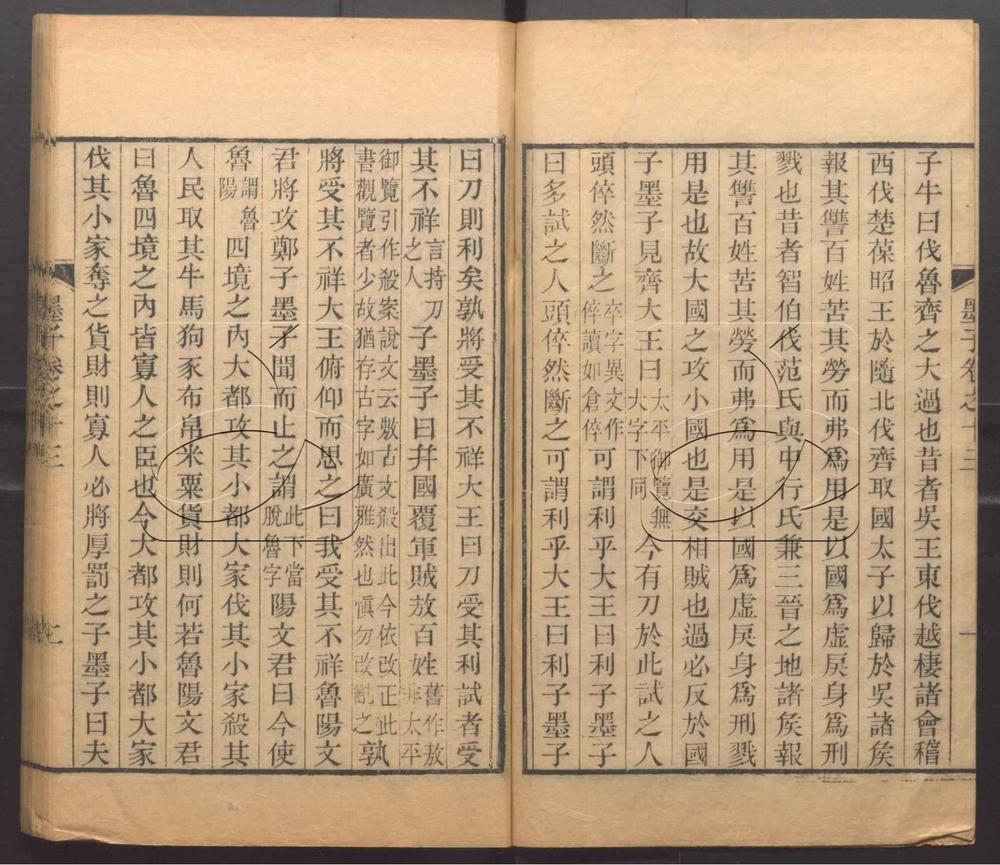 墨子卷之十三
一
子牛曰伐魯齊之大過也昔者吳王東伐越棲諸會稽
西伐楚葆昭王於隨北伐齊取國太子以歸於吳諸矦
報其讐百姓苦其勞而弗爲用是以國爲虛戾身爲刑
戮也昔者智伯伐范氏與中行氏兼三晉之地諸矦報
其讐百姓苦其勞而弗爲用是以國爲虛戾身爲刑戮
用是也故大國之攻小國也是交相賊也過必反於國
子墨子見齊大王曰太平御覽無大字下同今有刀於此試之人
頭倅然斷之卒字異文作倅讀如倉倅可謂利乎大王曰利子墨子
曰多試之人頭倅然斷之可謂利乎大王曰利子墨子
曰刀則利矣孰將受其不祥大王曰刀受其利試者受
其不祥言持刀之人子墨子曰幷國覆軍賊敖百姓舊作敖非太平
御覽引作殺案說文云敖古文殺出此今依改正此書觀覽者少故猶存古字如廣雅然也愼勿改亂之孰
將受其不祥大王俯仰而思之曰我受其不祥魯陽文
君將攻鄭子墨子聞而止之謂此下當脫魯字陽文君曰今使
魯謂魯陽四境之內大都攻其小都大家伐其小家殺其
人民取其牛馬狗豕布帛米粟貨財則何若魯陽文君
曰魯四境之內皆寡人之臣也今大都攻其小都大家
伐其小家奪之貨財則寡人必將厚罰之子墨子曰夫
墨子卷之十三
七